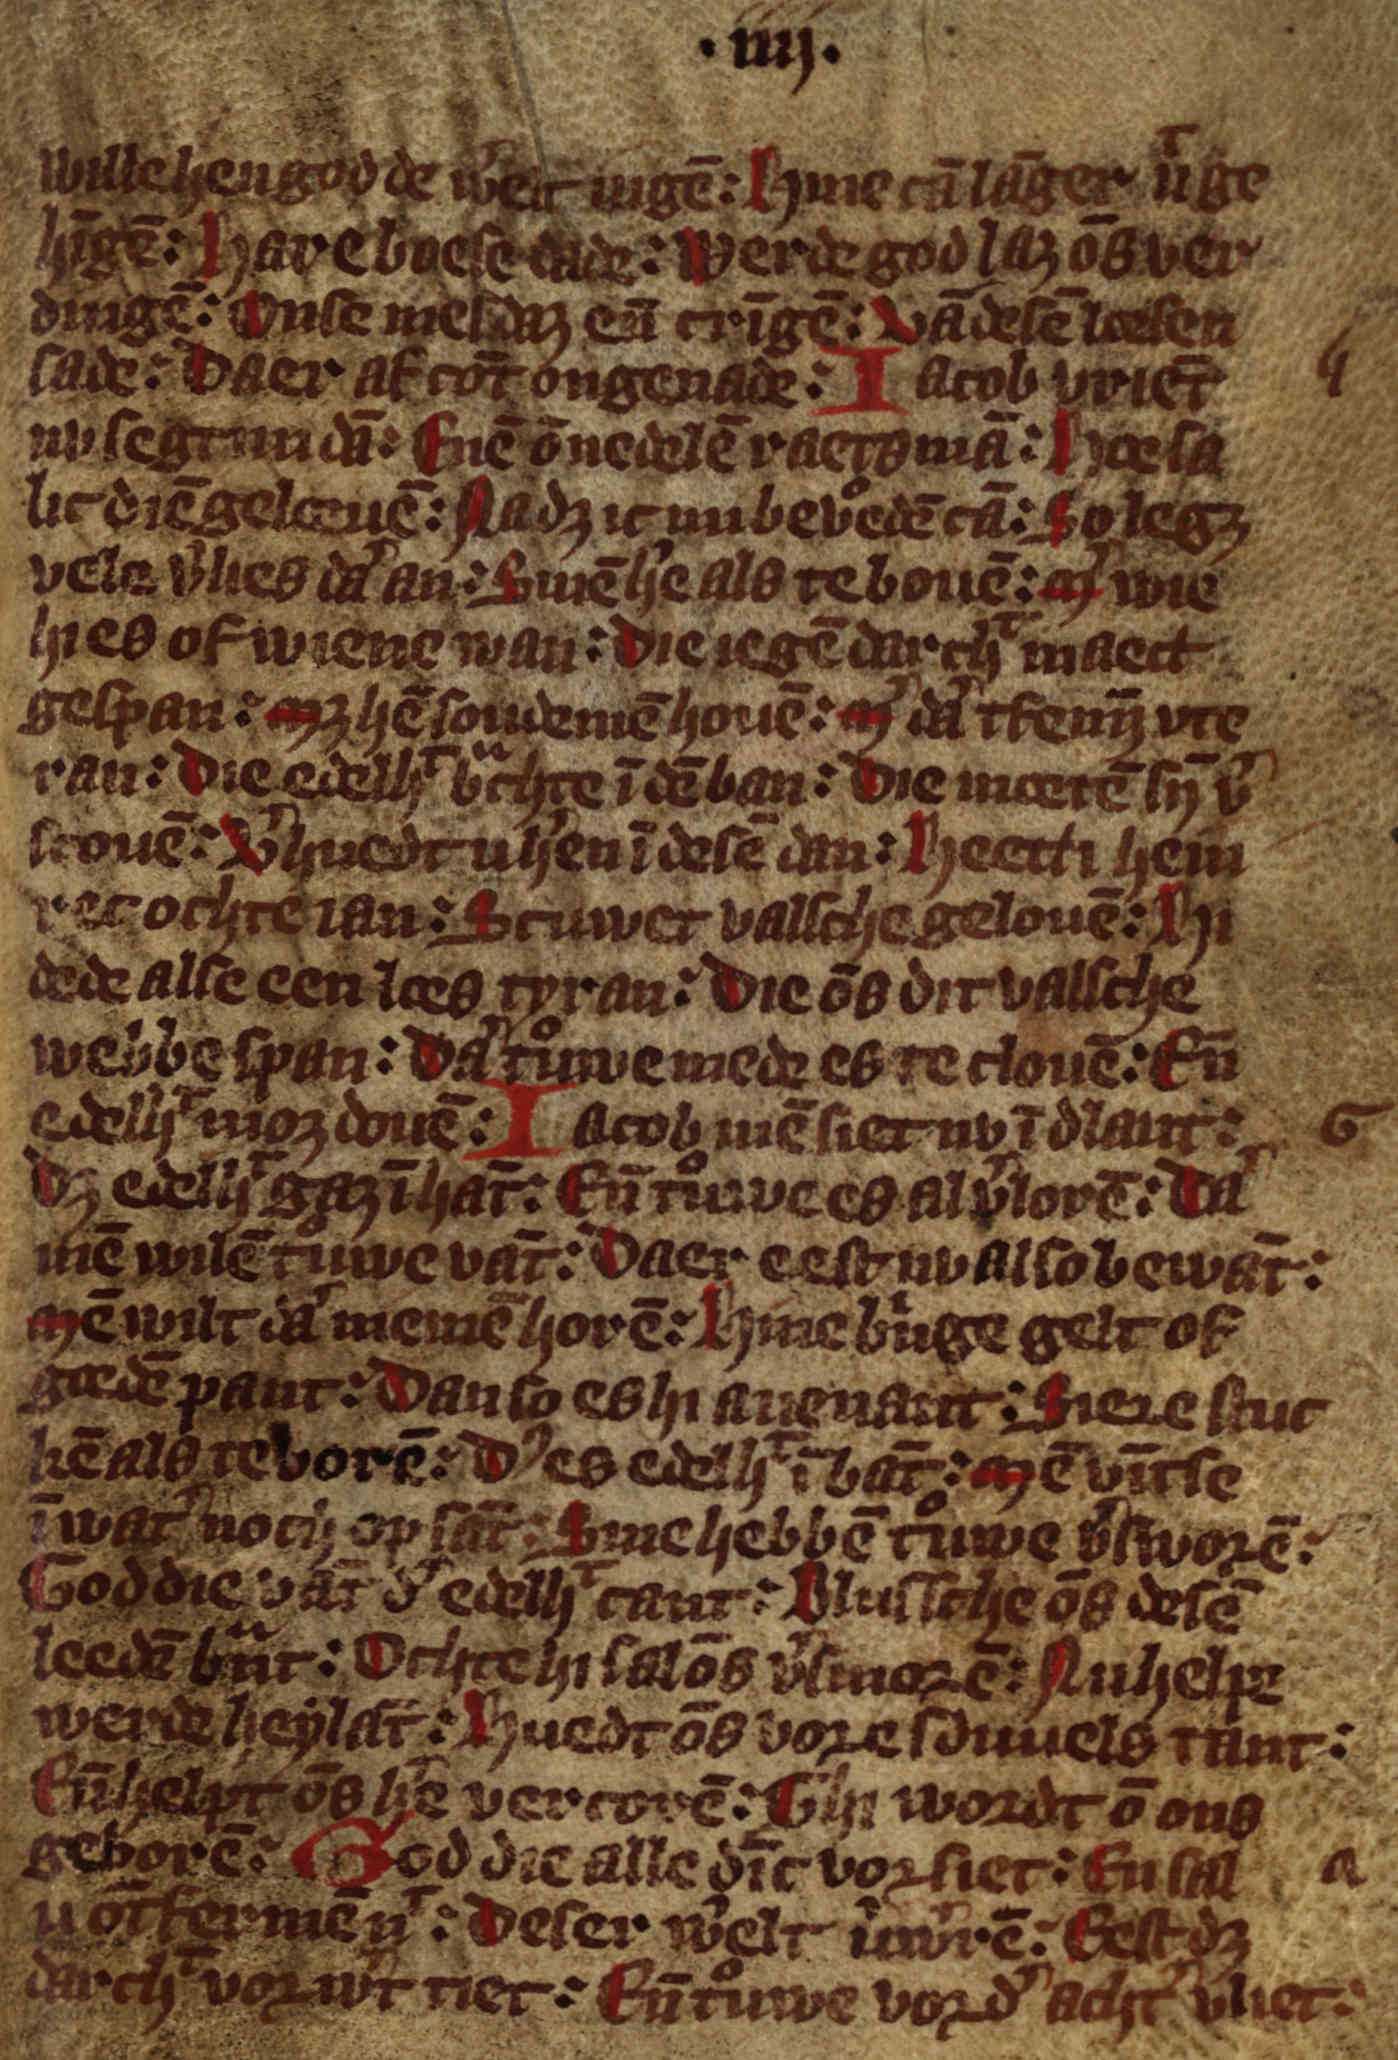 · iiij ·
wille hen god de w'elt uigē : Hine cā lāger ūge
hīgē : Hare boese dade : Werde god laz ōs ver
dingē : Onse mesdaz eñ crīgē : Vā desē loesen
sade : Daer af cōt ongenade : Iacob vriēt
nv segt mi dā : Enē ōnedelē raetsmā : Hoe sa
lic diē geloeuē : Nadz ic mi bevoedē cā : So legz
vele v'lies dā an : Sinē h'e als te bouē : M' wie
hi es of wiene wan : Die iegē darch't maect
gespan : Mz hē soudemē houē : M' dā tfenijn vte
ran : Die edelh't brachte ī dē ban : Die moetē sijn v'
scouē : V'huedt u hen ī desē dan : Heetti hem
rec ochte ian : Scuwet valsche gelouē : Hi
dede alse een loes tyran : Die ōs dit valsche
webbe span : Dā trouwe mede es te clouē : Eñ
edelh't moz douē : Iacob mē siet nv ī dlant :
Dz edelh't gaz ī hāt : Eñ trouwe es al v'lorē : Dā
mē wilē trouwe vāt : Daer eest nv also bewāt :
Mē wilt dā niemē horē : Hine bringe gelt of
goedē pant : Dan so es hi auenant : Siere stuc
kē als te vorē : D' es edelh't ī bāt : Mē vītse
ī wat' noch op sāt : Sine hebbē trouwe v'sworē :
God die vāt d' edelh't cant : Blussche ōs desē
leedē brāt : Ochte hi sal ōs v'smorē : Nu helpt
werde heylāt : Huedt ōs vore sduuels tant :
Eñ helpt ōs h'e vercorē : Ghi wordt ō ons
geborē : God die alle dīc vorsiet : En sal
u ōtfermē n't : Deser w'elt uw'rē : Eest dz
darch't vor w't tiet : Eñ trouwe vor d' acht' vliet :
G
a